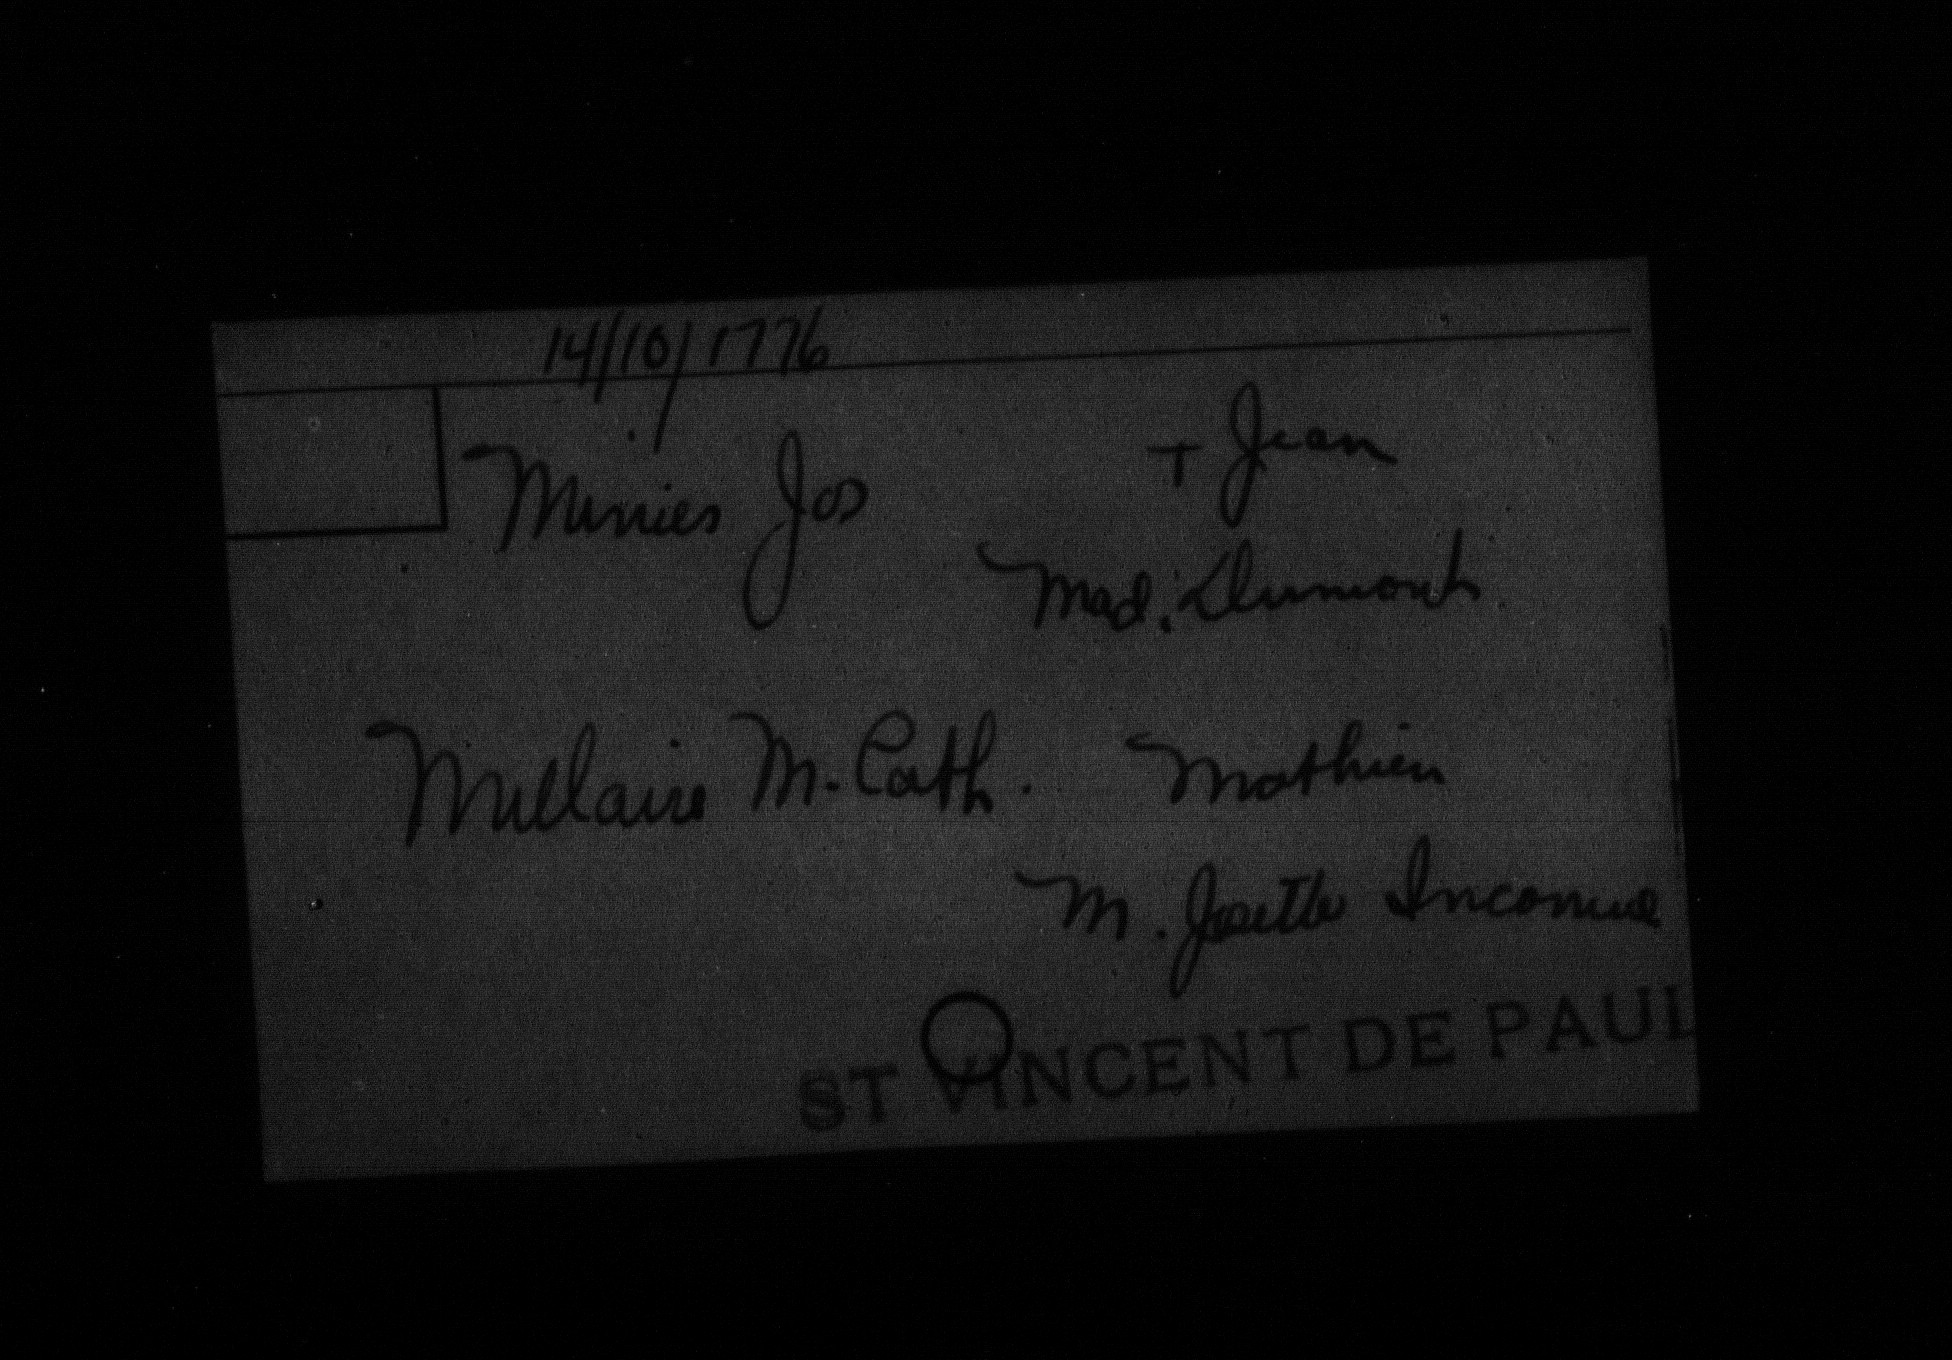 14/10/1776
Minies Jos + Jean
Mad. Dumont
Millaire M. Cath. Mathieu
M. Josette Inconnue
ST VINCENT DE PAUL